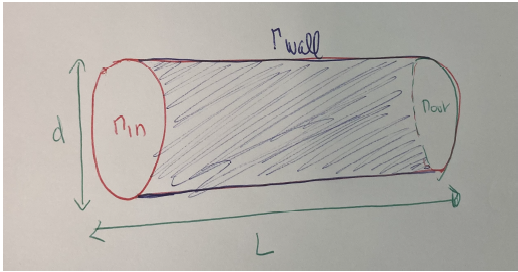 Γwall
Γin
Γout
d
L